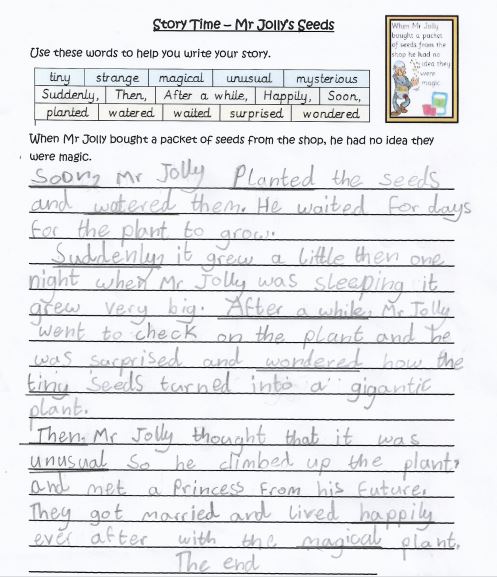 Story Time – Mr Jolly's Seeds
Use these words to help you write your story.
tiny strange magical unusual mysterious
Suddenly, Then, After a while, Happily, Soon,
planted watered waited surprised wondered
When Mr Jolly
bought a packet
of seeds from the
shop he had no
idea they
were
magic.
When Mr Jolly bought a packet of seeds from the shop, he had no idea they
were magic.
Soon, Mr Jolly Planted the seeds
and watered them. He waited for days
for the plant to grow.
Suddenly, it grew a little then one
night when Mr Jolly was sleeping it
grew very big. After a while, Mr Jolly
went to check on the plant and he
was surprised and wondered how the
tiny seeds turned into a gigantic
plant.
Then, Mr Jolly thought that it was
unusual so he climbed up the plant,
and met a Princess from his future.
They got married and lived happily
ever after with the magical plant.
The end